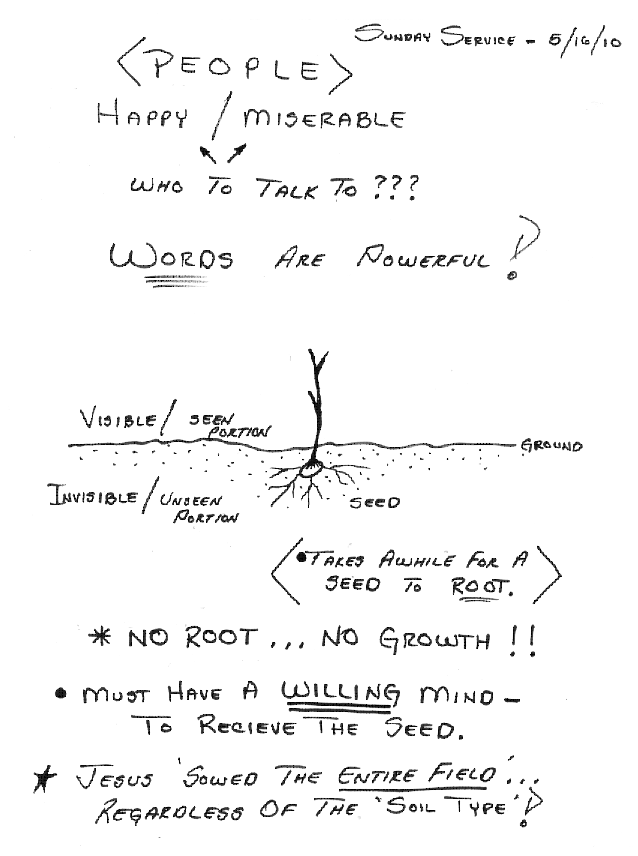 SUNDAY SERVICE - 5/16/10
<PEOPLE>
HAPPY / MISERABLE
WHO TO TALK TO ???
WORDS ARE POWERFUL !
VISIBLE / SEEN
PORTION
GROUND
INVISIBLE / UNSEEN
PORTION
SEED
• TAKES AWHILE FOR A
SEED TO ROOT.
* NO ROOT ... NO GROWTH !!
• MUST HAVE A WILLING MIND -
TO RECIEVE THE SEED.
★ JESUS 'SOWED THE ENTIRE FIELD'...
REGARDLESS OF THE 'SOIL TYPE' !